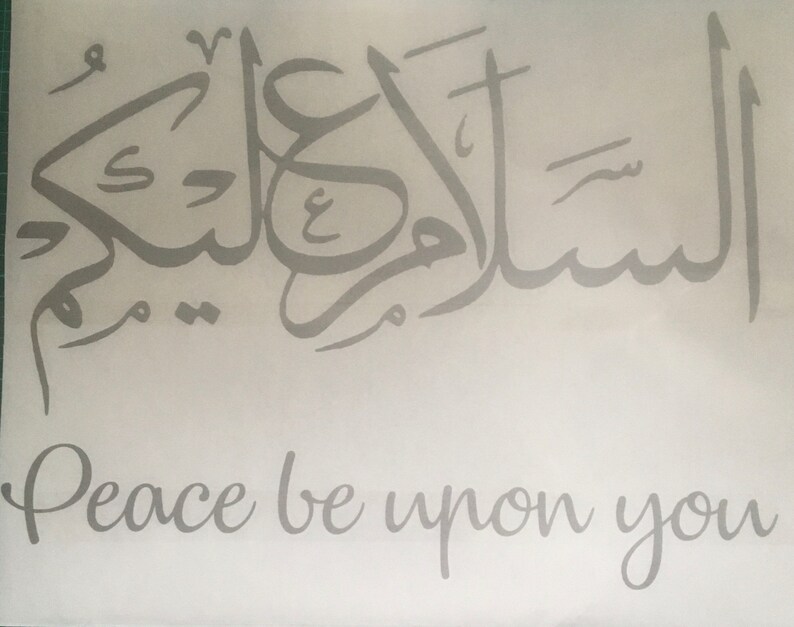 السلام عليكم
Peace be upon you